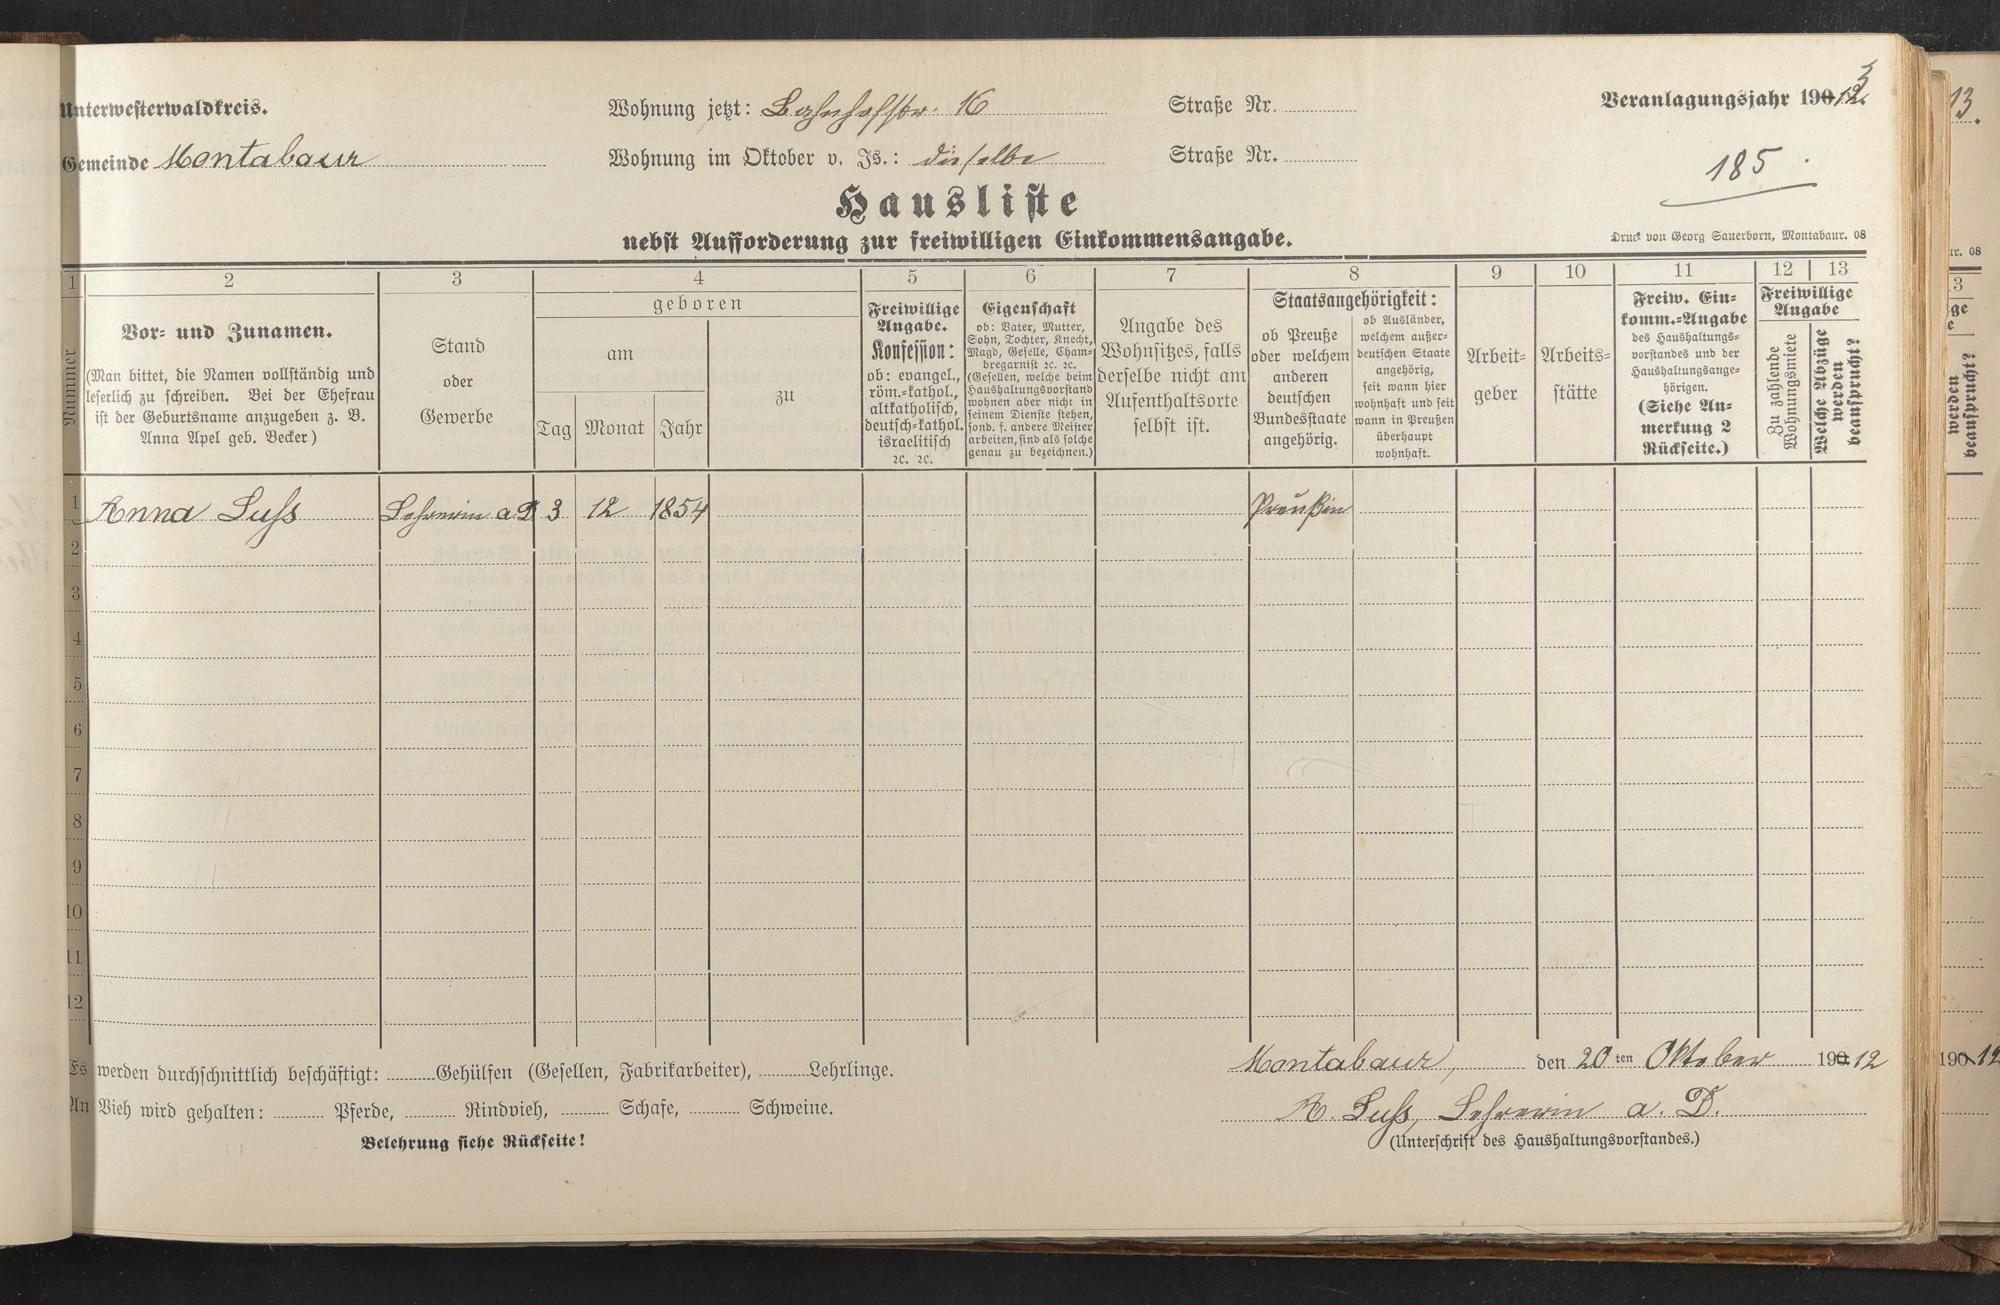 Unterwesterwaldkreis.
Gemeinde Montabaur
Wohnung jetzt: Bahnhofstr. 16 Straße Nr.
Wohnung im Oktober v. Js.: dieselbe Straße Nr.
Veranlagungsjahr 19012.
3
185.
Hausliste
nebst Aufforderung zur freiwilligen Einkommensangabe.
Druck von Georg Sauerborn, Montabaur. 08
1 2 3 4 5 6 7 8 9 10 11 12 13
Nummer
Vor- und Zunamen.
(Man bittet, die Namen vollständig und
leserlich zu schreiben. Bei der Ehefrau
ist der Geburtsname anzugeben z. B.
Anna Apel geb. Becker.)
Stand
oder
Gewerbe
geboren
am
Tag Monat Jahr
zu
Freiwillige
Angabe.
Konfession:
ob: evangel.,
röm.-kathol.,
altkatholisch,
deutsch-kathol.
israelitisch
2c. 2c.
Eigenschaft
ob: Vater, Mutter,
Sohn, Tochter, Knecht,
Magd, Geselle, Cham-
bregarnist 2c. 2c.
(Gesellen, welche beim
Haushaltungsvorstand
wohnen aber nicht in
seinem Dienste stehen,
sond. f. andere Meister
arbeiten, sind als solche
genau zu bezeichnen.)
Angabe des
Wohnsitzes, falls
derselbe nicht am
Aufenthaltsorte
selbst ist.
Staatsangehörigkeit:
ob Preuße
oder welchem
anderen
deutschen
Bundesstaate
angehörig.
ob Ausländer,
welchem außer-
deutschen Staate
angehörig,
seit wann hier
wohnhaft und seit
wann in Preußen
überhaupt
wohnhaft.
Arbeit-
geber
Arbeits-
stätte
Freiw. Ein-
komm.-Angabe
des Haushaltungs-
vorstandes und der
Haushaltungsange-
hörigen.
(Siehe An-
merkung 2
Rückseite.)
Freiwillige
Angabe
Zu zahlende
Wohnungsmiete
Welche Abzüge
werden
beansprucht?
1 Anna Luss Lehrerin a.D 3 12 1854 Preußin
2
3
4
5
6
7
8
9
10
11
12
Es werden durchschnittlich beschäftigt: Gehülfen (Gesellen, Fabrikarbeiter), Lehrlinge.
An Vieh wird gehalten: Pferde, Rindvieh, Schafe, Schweine.
Belehrung siehe Rückseite!
Montabaur, den 20ten Oktober 19012
A. Luss, Lehrerin a. D.
(Unterschrift des Haushaltungsvorstandes.)
13.
ur. 08
3
ge
e
werden
beansprucht?
19012